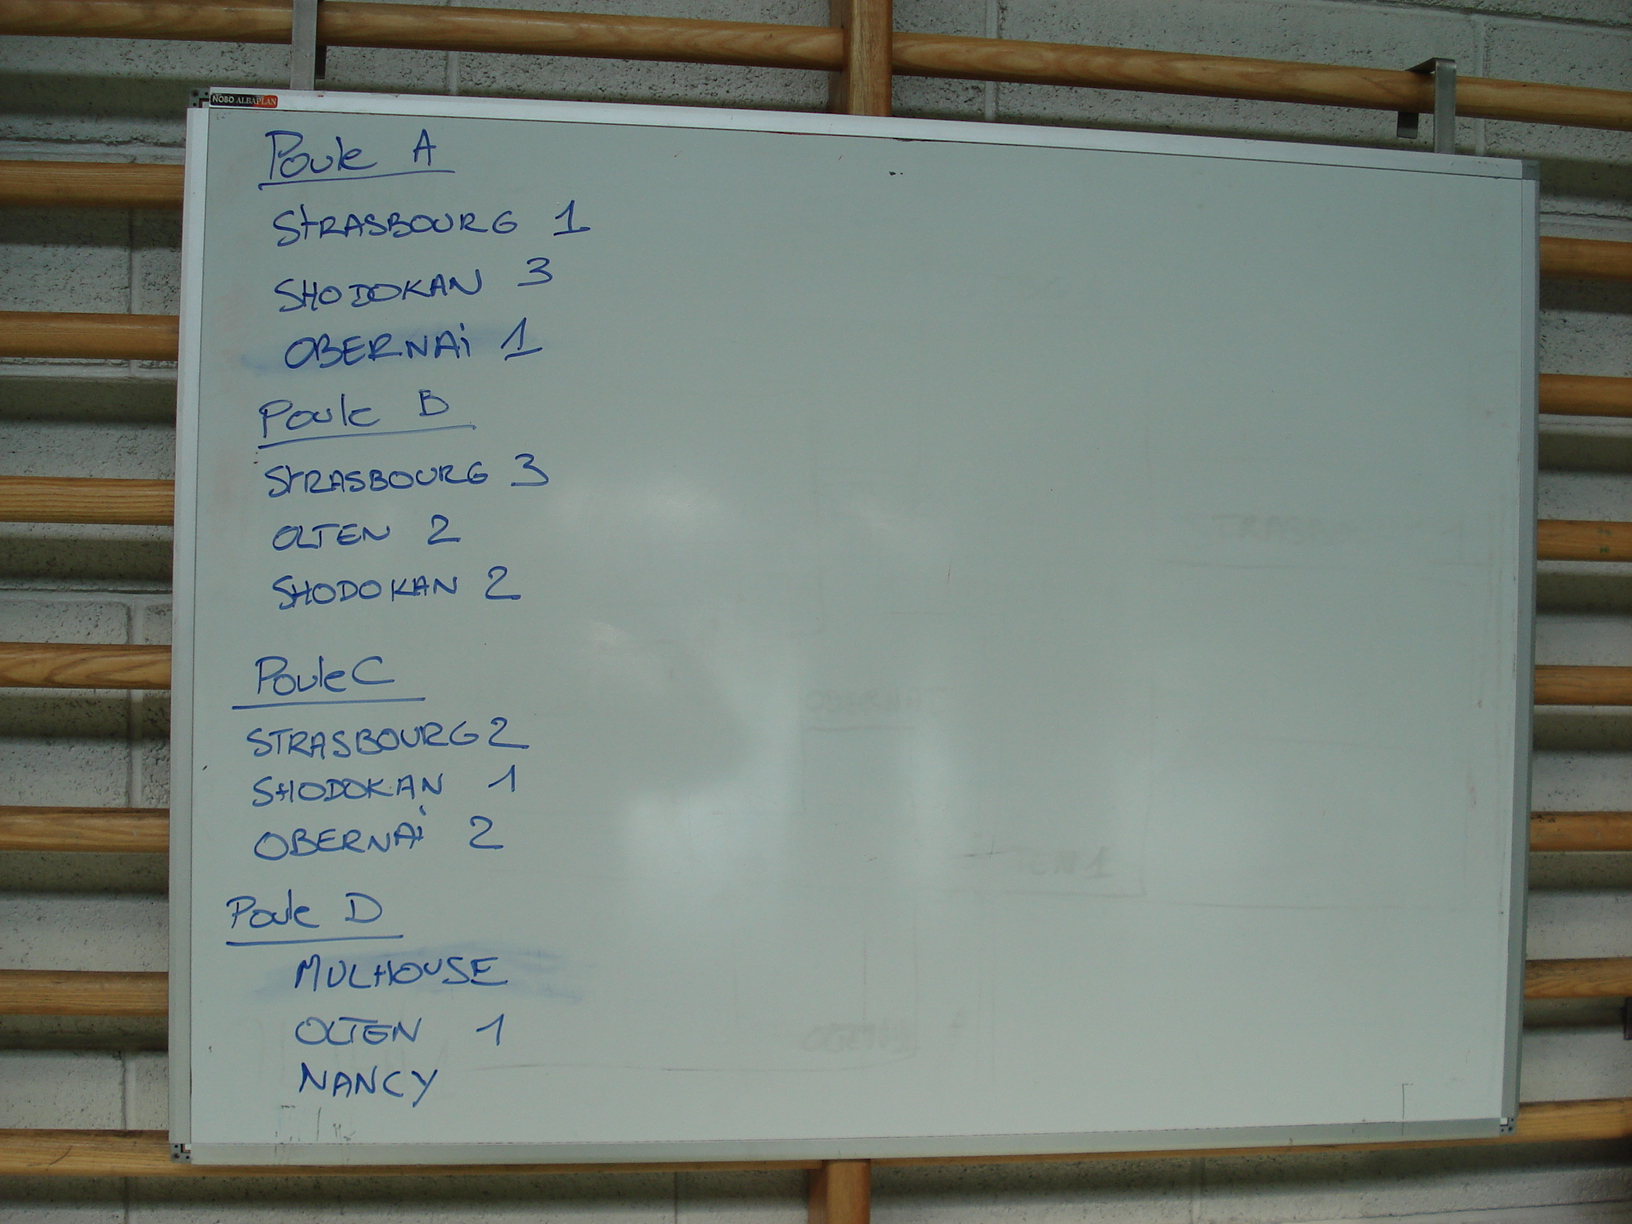 NOBO ALBAPLAN
Poule A
STRASBOURG 1
SHODOKAN 3
OBERNAi 1
Poule B
STRASBOURG 3
OLTEN 2
SHODOKAN 2
Poule C
STRASBOURG 2
SHODOKAN 1
OBERNAi 2
Poule D
MULHOUSE
OLTEN 1
NANCY